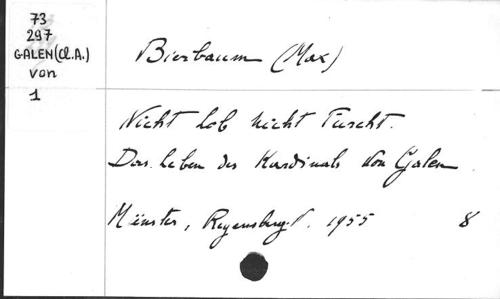 73
297
GALEN(Cl.A.)
von
1
Bierbaum (Max)
Nicht Lob nicht Furcht.
Das Leben des Kardinals von Galen
Münster, Regensburg. 1955 8